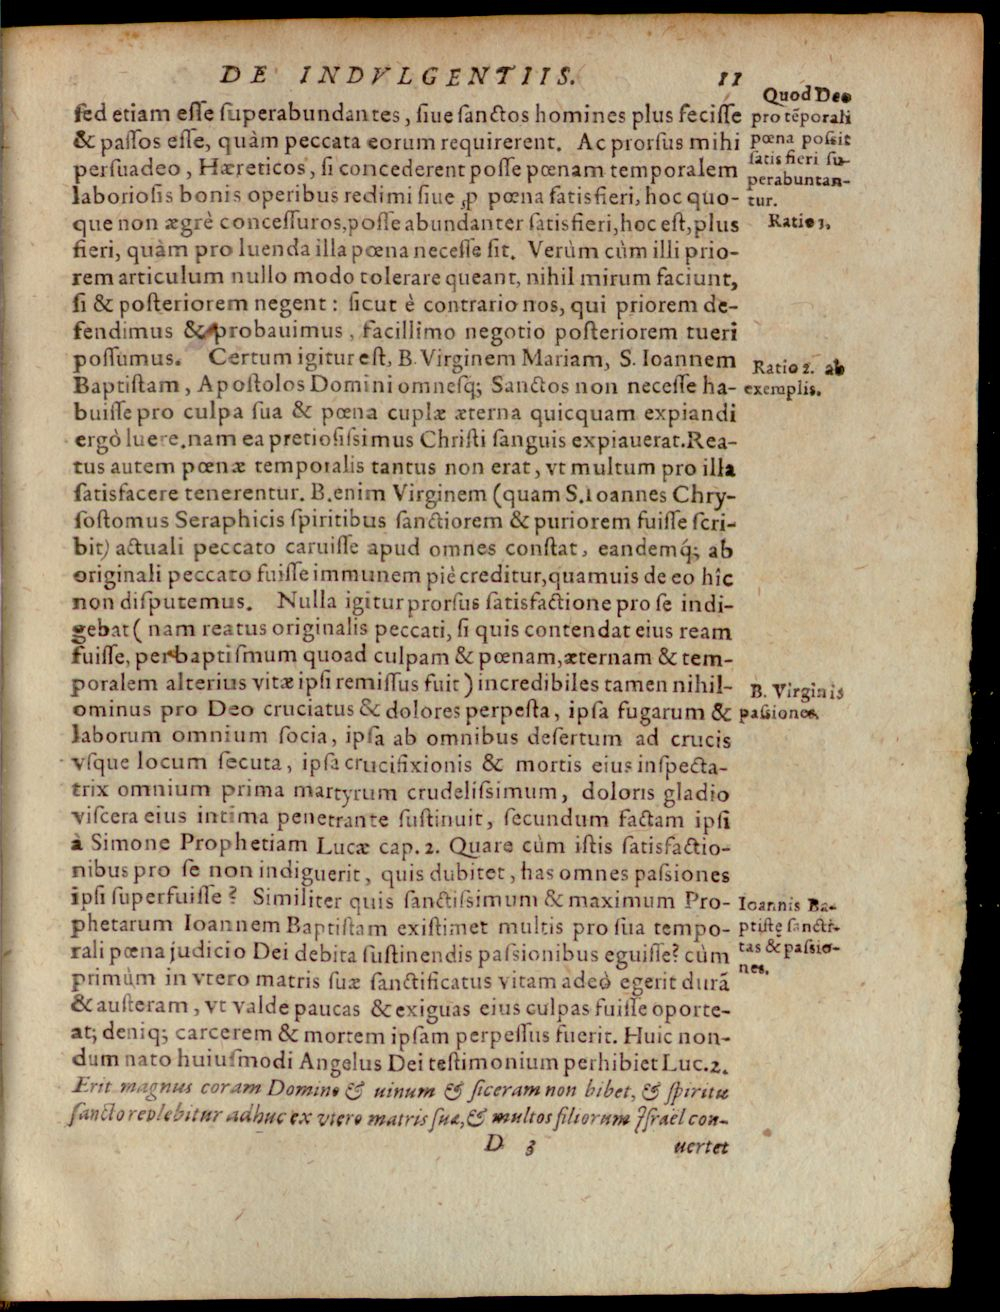 DE INDVLGENTIIS. 11
ſed etiam eſſe ſuperabundantes, ſiue ſanctos homines plus feciſſe
& paſſos eſſe, quàm peccata eorum requirerent. Ac prorſus mihi
perſuadeo, Hæreticos, ſi concederent poſſe pœnam temporalem
laborioſis bonis operibus redimi ſiue ꝓ pœna ſatisfieri, hoc quo-
que non ægrè conceſſuros, poſſe abundanter ſatisfieri, hoc eſt, plus
fieri, quàm pro luenda illa pœna neceſſe ſit. Verùm cùm illi prio-
rem articulum nullo modo tolerare queant, nihil mirum faciunt,
ſi & poſteriorem negent: ſicut è contrario nos, qui priorem de-
fendimus & probauimus, facillimo negotio poſteriorem tueri
poſſumus. Certum igitur eſt, B. Virginem Mariam, S. Ioannem
Baptiſtam, Apoſtolos Domini omneſq; Sanctos non neceſſe ha-
buiſſe pro culpa ſua & pœna cuplæ æterna quicquam expiandi
ergò luere, nam ea pretioſiſsimus Chriſti ſanguis expiauerat. Rea-
tus autem pœnæ temporalis tantus non erat, vt multum pro illa
ſatisfacere tenerentur. B. enim Virginem (quam S. Ioannes Chry-
ſoſtomus Seraphicis ſpiritibus ſanctiorem & puriorem fuiſſe ſcri-
bit) actuali peccato caruiſſe apud omnes conſtat, eandemq́; ab
originali peccato fuiſſe immunem piè creditur, quamuis de eo hîc
non diſputemus. Nulla igitur prorſus ſatisfactione pro ſe indi-
gebat (nam reatus originalis peccati, ſi quis contendat eius ream
fuiſſe, per baptiſmum quoad culpam & pœnam, æternam & tem-
poralem alterius vitæ ipſi remiſſus fuit) incredibiles tamen nihil-
ominus pro Deo cruciatus & dolores perpeſta, ipſa fugarum &
laborum omnium ſocia, ipſa ab omnibus deſertum ad crucis
vſque locum ſecuta, ipſa crucifixionis & mortis eius inſpecta-
trix omnium prima martyrum crudeliſsimum, doloris gladio
viſcera eius intima penetrante ſuſtinuit, ſecundum factam ipſi
à Simone Prophetiam Lucæ cap. 2. Quare cùm iſtis ſatisfactio-
nibus pro ſe non indiguerit, quis dubitet, has omnes paſsiones
ipſi ſuperfuiſſe? Similiter quis ſanctiſsimum & maximum Pro-
phetarum Ioannem Baptiſtam exiſtimet multis pro ſua tempo-
rali pœna judicio Dei debita ſuſtinendis paſsionibus eguiſſe? cùm
primùm in vtero matris ſuæ ſanctificatus vitam adeò egerit durã
& auſteram, vt valde paucas & exiguas eius culpas fuiſſe oporte-
at; deniq; carcerem & mortem ipſam perpeſſus fuerit. Huic non-
dum nato huiuſmodi Angelus Dei teſtimonium perhibiet Luc. 2.
Erit magnus coram Domino & uinum & ſiceram non bibet, & ſpiritu
ſancto replebitur adhuc ex vtero matris ſuæ, & multos filiorum Iſrael con-
D 3 uertet
Quod Deo
pro tẽporali
pœna poſsit
ſatisfieri ſu-
perabuntan-
tur.
Ratio 1.
Ratio 2. ab
exemplis.
B. Virginis
paſsiones.
Ioannis Ba-
ptiſtę ſancti-
tas & paſsio-
nes.